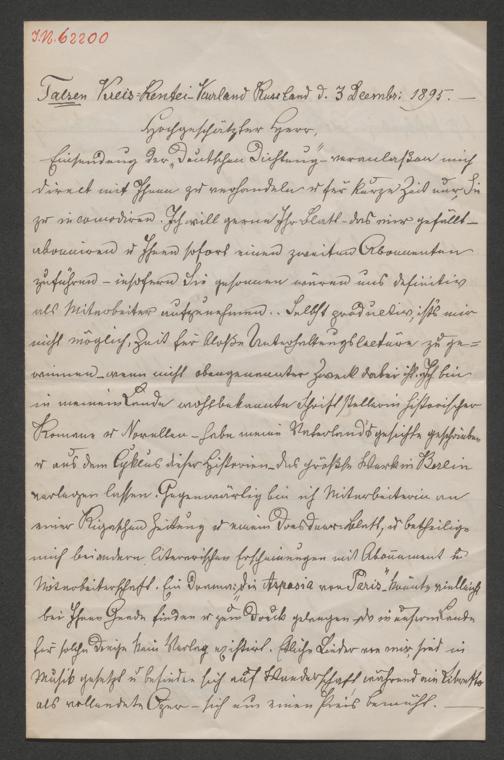 J.N. 62200
Talsen Kreis-Rentei-Kurland Russland d. 3 Decembr: 1895. —
Hochgeschätzter Herr,
Einsendung der „Deutschen Dichtung" veranlassen mich
direct mit Ihnen zu verhandeln u für kurze Zeit nur, Sie
zu incomodiren. Ich will gerne Ihr Blatt – das mir gefällt –
abonniren u Ihnen sofort einen zweiten Abonnenten
zuführen – insofern Sie gesonnen wären uns definitiv
als Mitarbeiter aufzunehmen. . Selbst productiv, ist's mir
nicht möglich, Zeit für bloße Unterhaltungslectüre zu ge=
winnen – wenn nicht obengenannter Zweck dabei ist. Ich bin
in meinem Lande wohlbekannte Schriftstellerin historischer
Romane u Novellen – habe meine Vaterlandsgeschichte geschrieben
u aus dem Cyklus dieser Historien – das größte Werk in Berlin
verlegen lassen. Gegenwärtig bin ich Mitarbeiterin an
einer Rigaschen Zeitung u einem Dresdner-Blatt, u betheilige
mich bei andern literarischen Erscheinungen mit Abonnement u
Mitarbeiterschaft. Ein Drama: „die Aspasia von Paris" könnte vielleicht
bei Ihnen Gnade finden u zum Druck gelangen, da in unserm Lande
für solche Dinge kein Verlag existirt. Etliche Lieder von mir, sind in
Musik gesetzt u befinden sich auf Wanderschaft, während ein Libretto
als vollendete Oper – sich um einen Preis bemüht. —